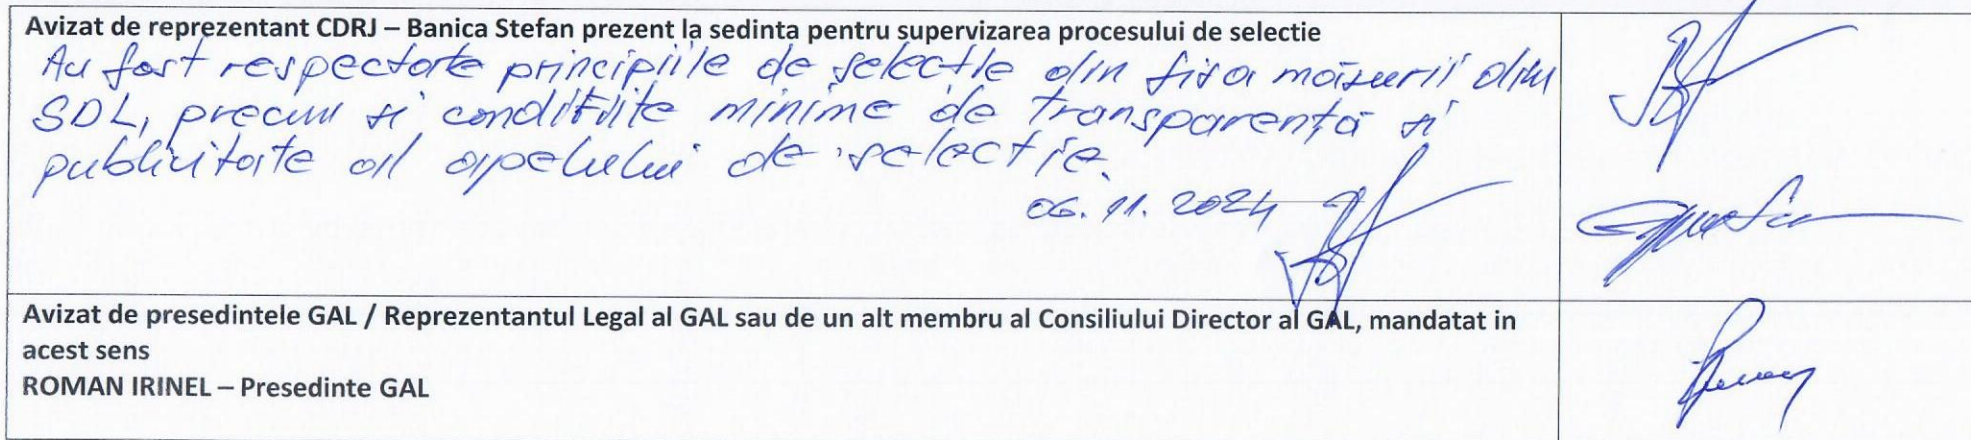 Avizat de reprezentant CDRJ – Banica Stefan prezent la sedinta pentru supervizarea procesului de selectie
Au fost respectate principiile de selectie din fisa măsurii din
SDL, precum si conditiile minime de transparență si
publicitate al apelului de selectie.
06.11.2024
Avizat de presedintele GAL / Reprezentantul Legal al GAL sau de un alt membru al Consiliului Director al GAL, mandatat in
acest sens
ROMAN IRINEL – Presedinte GAL